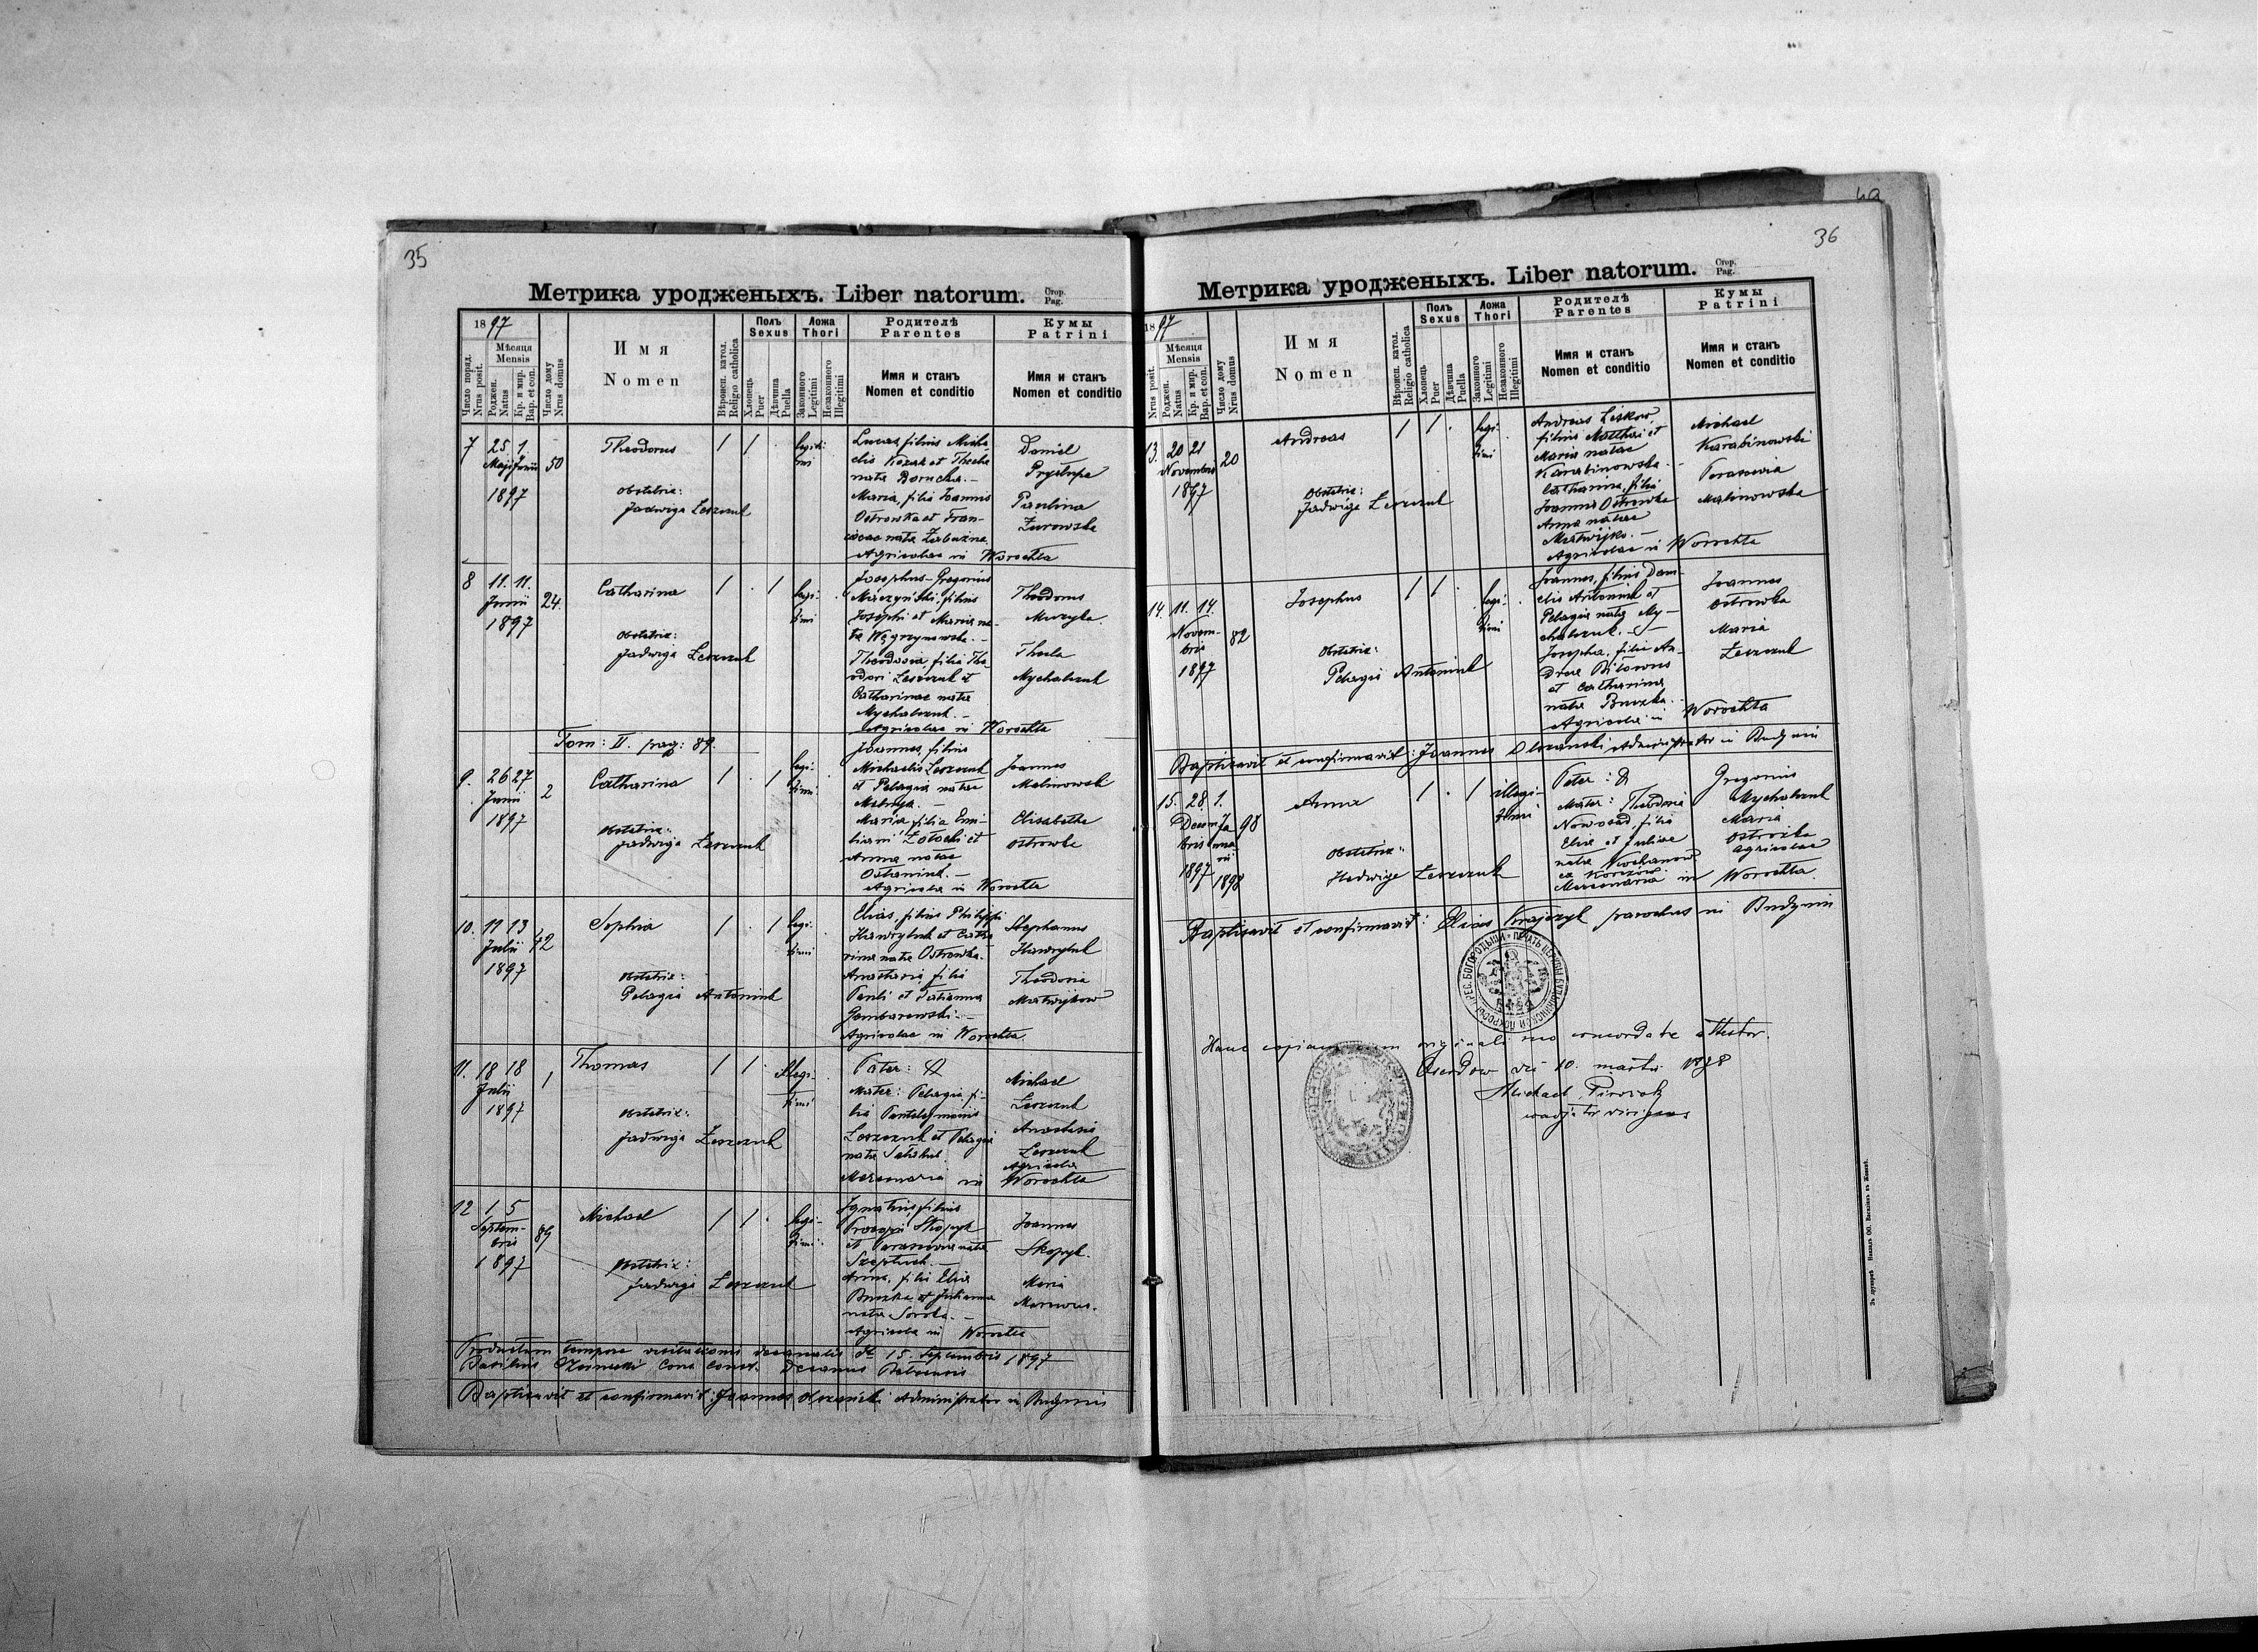 35
Метрика уродженыхъ. Liber natorum. Стор. Pag.
1897
Число поряд. Nrus posit.
Мѣсяця Mensis
Роджен. Natus
Кр. и мир. Bap. et con.
Число дому Nrus domus
Имя Nomen
Вѣроисп. катол. Religio catholica
Полъ Sexus
Хлопець Puer
Дѣвчина Puella
Ложа Thori
Законного Legitimi
Незаконного Illegitimi
Родителѣ Parentes
Имя и станъ Nomen et conditio
Кумы Patrini
Имя и станъ Nomen et conditio
7 25 1. Maji Junii 1897 50
Theodorus
Obstetrix:
Jadwiga Leszczuk
legitimi
Lucas, filius Micha-
elis Kozak et Thecla
nata Borucha. -
Maria, filia Joannis
Ostrowka et Fran-
ciscae nata
Agricolae inWorochta
Daniel
Prystupa
Paulina
Żurowska
8 11. 11. Junii 1897 24.
Catharina
Obstetrix:
Jadwiga Leszczuk
legi-
timi
Josephus-Gregorius
Maczyński, filius
Josephi et Maria na-
ta Węgrzynowska. -
Theodosia, filia The-
odori Leszczuk et
Catharinae nata
Mychalczuk. -
Agricolae in Worochta
Theodorus
Muzyka
Thecla
Mychalczuk
Tom: II. pag: 89.
9. 26 27 Junii 1897 2
Catharina
Obstetrix:
Jadwiga Leszczuk
legi-
timi
Joannes, filius
Michaelis Leszczuk
et Pelagia natae
Maria filia Emi-
liani Zołocki et
Anna natae
Agricolae in Worochta
Joannes
Malinowski
Elisabetha
Ostrowka
10. 11 13 Julii 1897 42
Sophia
Obstetrix:
Pelagia Antoniuk
legi-
timi
Elias, filius Philippi
Hawryluk et Catha
rina nata Ostrowka.
Anastasia, filia
Pauli et Tatianna
Gombarowski. -
Agricolae in Worochta
Stephanus
Hawryluk
Theodosia
Matwijkow
11. 18 18 Julii 1897 1
Thomas
Obstetrix:
Jadwiga Leszczuk
illegi-
timi
Pater:
Mater: Pelagia, fi-
lia Panteleymonis
Leszczuk et Pelagia
nata
Mercenaria in Worochta
Michael
Leszczuk
Anastasia
Leszczuk
Agricolae
12 1 5 Septem-
bris 1897 89
Michael
Obstetrix:
Jadwiga Leszczuk
legi-
timi
Ignatius filius
Procopii Skopyk
et Parascevia nata
Szeptuch. -
Anna, filia Elia
Buczka et Julianna
nata Soroka. -
Agricolae in Worochta
Joannes
Skopyk.
Maria
Productum tempore visitationis decanalis de 15. Septembris 1897
Basilius Decanus
Baptisavit et confirmavit: Joannes Olszański Administrator in Budynin
36
Метрика уродженыхъ. Liber natorum. Стор. Pag.
1897
Число поряд. Nrus posit.
Мѣсяця Mensis
Роджен. Natus
Кр. и мир. Bap. et con.
Число дому Nrus domus
Имя Nomen
Вѣроисп. катол. Religio catholica
Полъ Sexus
Хлопець Puer
Дѣвчина Puella
Ложа Thori
Законного Legitimi
Незаконного Illegitimi
Родителѣ Parentes
Имя и станъ Nomen et conditio
Кумы Patrini
Имя и станъ Nomen et conditio
13. 20 21 Novembris 1897 20
Andreas
Obstetrix:
Jadwiga Leszczuk
legi-
timi
Andreas Liskow,
filius Matthaei et
Maria natae
Karabinowska. -
Catharina, filia
Joannis Ostrowka
Anna natae
Matwijko. -
Agricolae in Worochta
Michael
Karabinowski
Parascevia
Malinowska
14. 11. 14. Novem-
bris 1897 82
Josephus
Obstetrix:
Pelagia Antoniuk
legi-
timi
Joannes, filius Dani-
elis Antoniuk et
Pelagia nata My-
chalczuk. -
Josepha, filia An-
drea
et Catharina
nata Buczka.
Agricolae in Worochta
Joannes
Ostrowka
Maria
Leszczuk
Baptisavit et confirmavit: Joannes Olszanski Administrator in Budynin
15. 28. 1. Decem-
bris 1897 Ja-
nua-
rii 1898 98
Anna
Obstetrix:
Hedwiga Leszczuk
illegi-
timi
Pater:
Mater: Theodosia
Nowosad, filia
Elia et Juliae
nata
ex Korczow
Mercenaria in Worochta.
Gregorius
Mychalczuk
Maria
Ostrowka
agricolae
Baptisavit et confirmavit: Elias Krajczyk parochus in Budynin
Hanc copiam cum originali suo concordate attestor.
10. martii
Michael
49